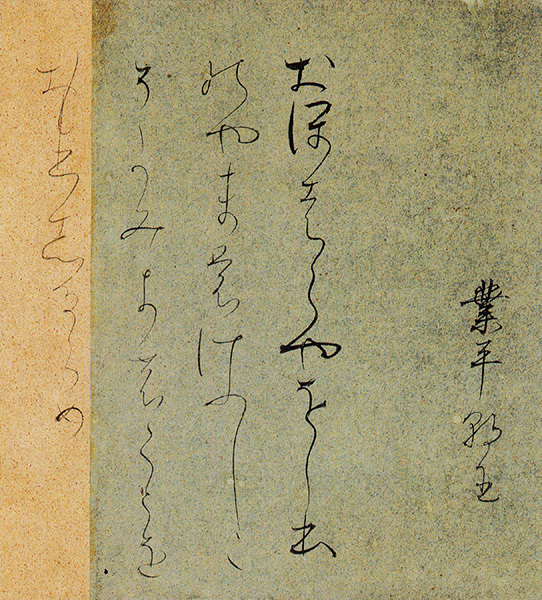 業平朝臣
おほはらやをしほ
のやまもけふこ
そはかみよのことを
おもひ らめ